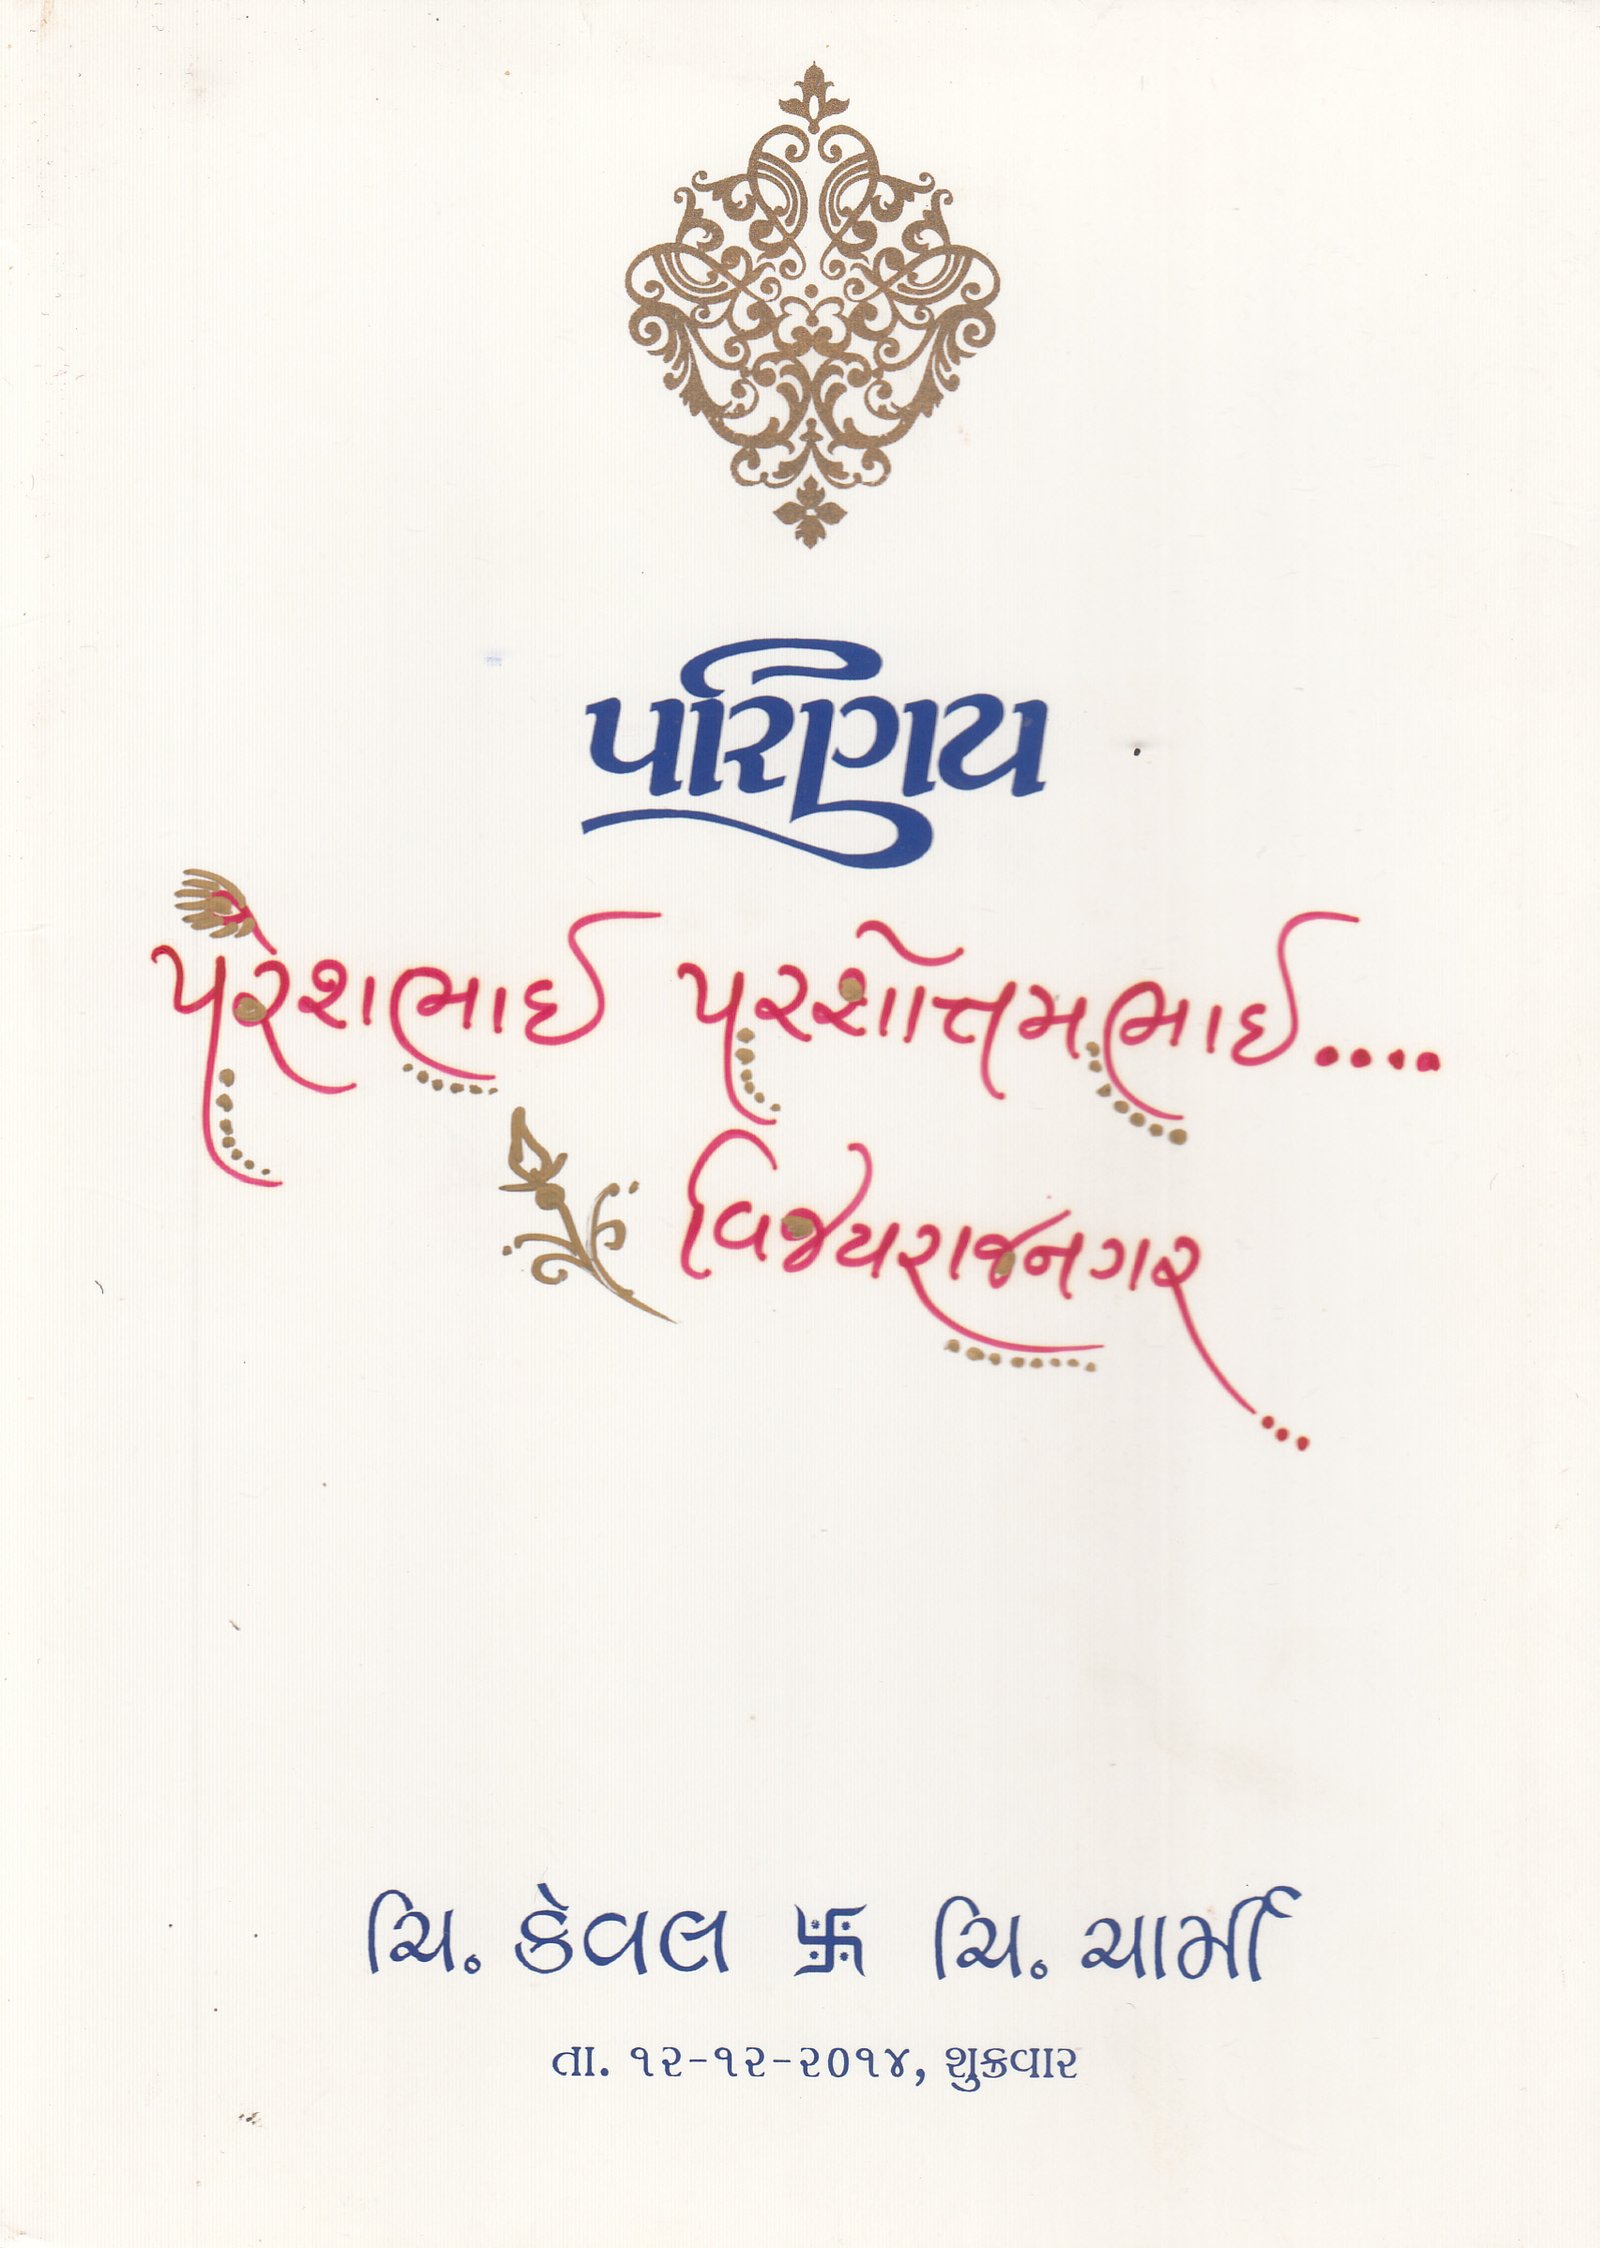 પરિણય
પરેશભાઈ પરશોત્તમભાઈ....
વિજયરાજનગર...
ચિ. કેવલ 卐 ચિ. ચાર્મી
તા. ૧૨-૧૨-૨૦૧૪, શુક્રવાર